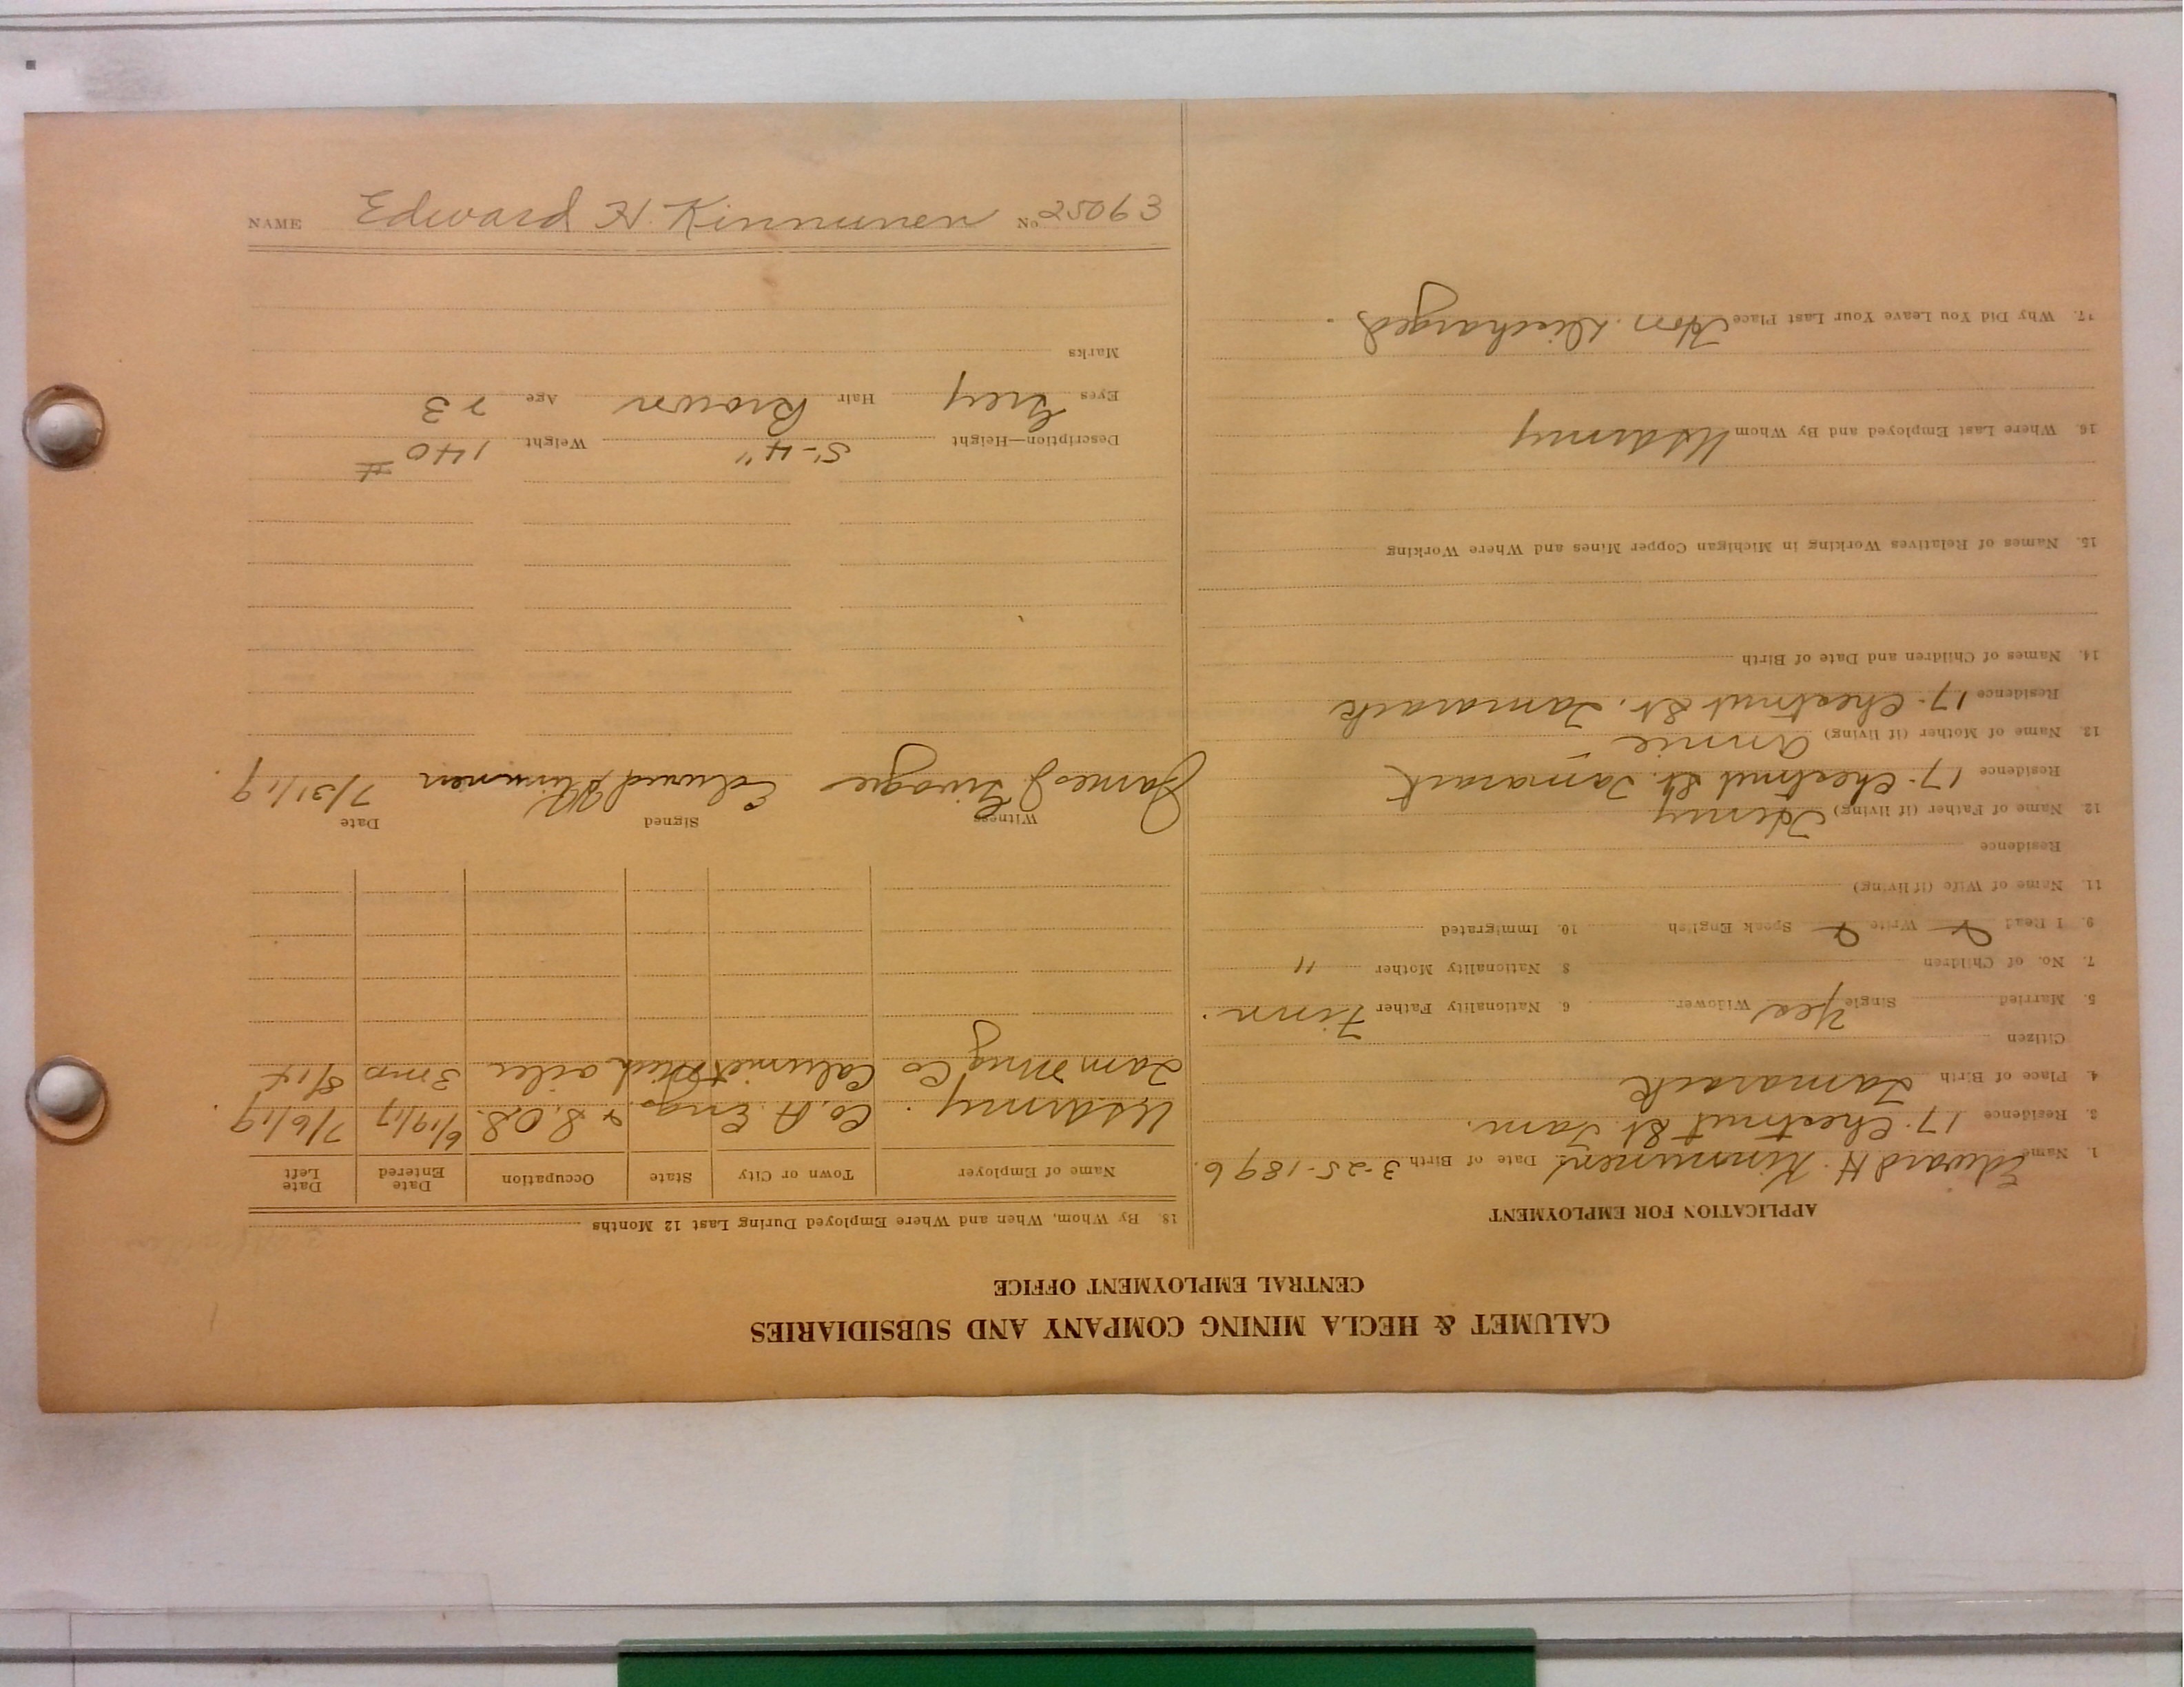 CALUMET & HECLA MINING COMPANY AND SUBSIDIARIES
CENTRAL EMPLOYMENT OFFICE
APPLICATION FOR EMPLOYMENT
1. Name Edward H. Kinnunen Date of Birth 3-25-1896.
3. Residence 17 Chestnut St. Tam.
4. Place of Birth Tamarack
Citizen
5. Married Single Yes Widower 6 Nationality Father Finn.
7. No. of Children 8 Nationality Mother "
9. I Read Write Speak English 10. Immigrated
11. Name of Wife (if living)
Residence
12 Name of Father (if living) Henry
Residence 17 Chestnut St. Tamarack
13. Name of Mother (if living) Annie -
Residence 17 Chestnut St. Tamarack
14. Names of Children and Date of Birth
15. Names of Relatives Working in Michigan Copper Mines and Where Working
16. Where Last Employed and By Whom US Army
17. Why Did You Leave Your Last Place Hon. Discharged.
18. By Whom, When and Where Employed During Last 12 Months
Name of Employer Town or City State Occupation Date Entered Date Left
US Army. Co. A. Engs. & S.O.S. 6/19/17 7/6/19.
Tam Mng Co Calumet Mich oiler 3 mos
Witness Signed Date
James J. Edward H Kinnunen 7/31/19.
Description—Height 5'-4" Weight 140 #
Eyes Grey Hair Brown Age 23
Marks
NAME Edward H. Kinnunen No 25063